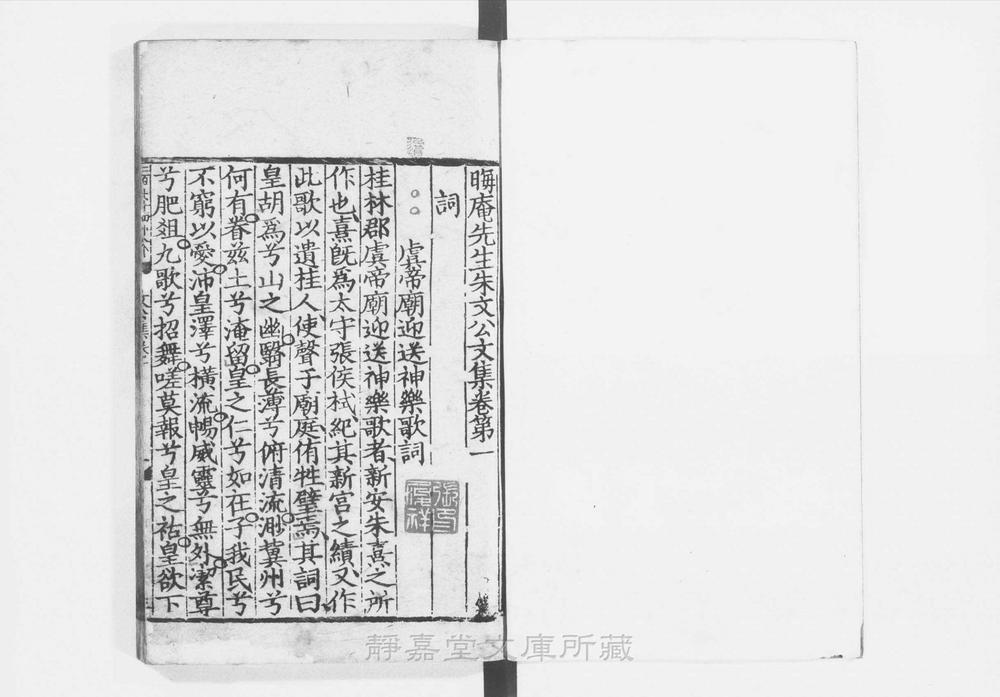 晦庵先生朱文公文集卷第一
詞
虞帝廟迎送神樂歌詞
桂林郡虞帝廟迎送神樂歌者新安朱熹之所
作也熹既爲太守張侯栻紀其新宮之績又作
此歌以遺桂人使聲于廟庭侑牲璧焉其詞曰
皇胡爲兮山之幽翳長薄兮俯清流渺冀州兮
何有眷茲土兮淹留皇之仁兮如在子我民兮
不窮以愛沛皇澤兮橫流暢威靈兮無外潔尊
兮肥俎九歌兮招舞嗟莫報兮皇之祜皇欲下
靜嘉堂文庫所藏